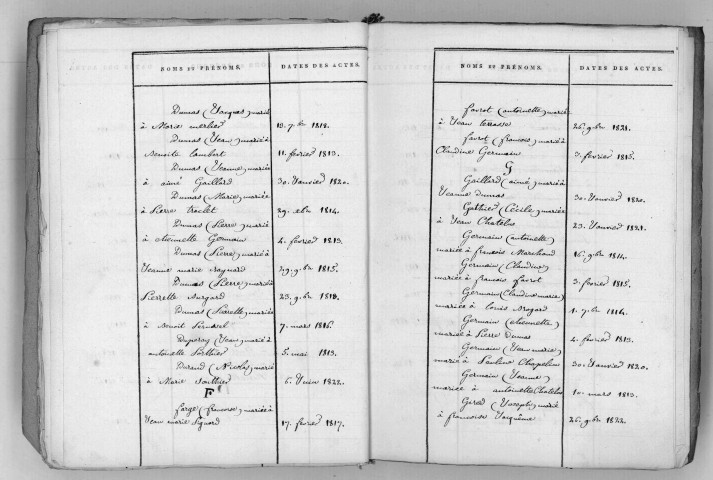 NOMS ET PRÉNOMS. DATES DES ACTES.
Dumas (Jacques) marié
à Marie 13. 7.bre 1818.
Dumas (Jean) marié à
Benoite Lambert 11. février 1813.
Dumas (Jeanne) mariée
à aimé Gaillard 30. Janvier 1820.
Dumas (Marie) mariée
à Pierre 1814.
Dumas (Pierre) marié
à etiennette Germain 4. février 1813.
Dumas (Pierre) marié à
Jeanne marie 29. 9.bre 1815.
Dumas (Pierre) marié à
Pierrette 23. 9.bre 1818.
Dumas (Pierrette) mariée
à Benoit 7. mars 1816.
(Jean) marié à
antoinette 5. mai 1813.
Durand (Nicolas) marié
à Marie 6. Juin 1822.
F
farge (francoise) mariée à
Jean marie 17. février 1817.
NOMS ET PRÉNOMS. DATES DES ACTES.
favrot (antoinette) mariée
à Jean terrasse 26. 9.bre 1821.
favrot (francois) marié à
Claudine Germain 3. février 1815.
G
Gaillard (aimé) marié à
Jeanne Dumas 30. Janvier 1820.
(Cécile) mariée
à Jean Chatelus 23. Janvier 1821.
Germain (antoinette)
mariée à francois Marchand 16. 9.bre 1814.
Germain (Claudine)
mariée à francois favrot 3. février 1815.
Germain (Claudine marie)
mariée à Louis 1. 7.bre 1814.
Germain (etiennette)
mariée à Pierre Dumas 4. février 1813.
Germain (Jean marie)
marié à Pauline Chapelin 30. Janvier 1820.
Germain (Jeanne)
mariée à antoine Chatelus 10. mars 1813.
(Joseph) marié
à francoise 26. 9.bre 1822.